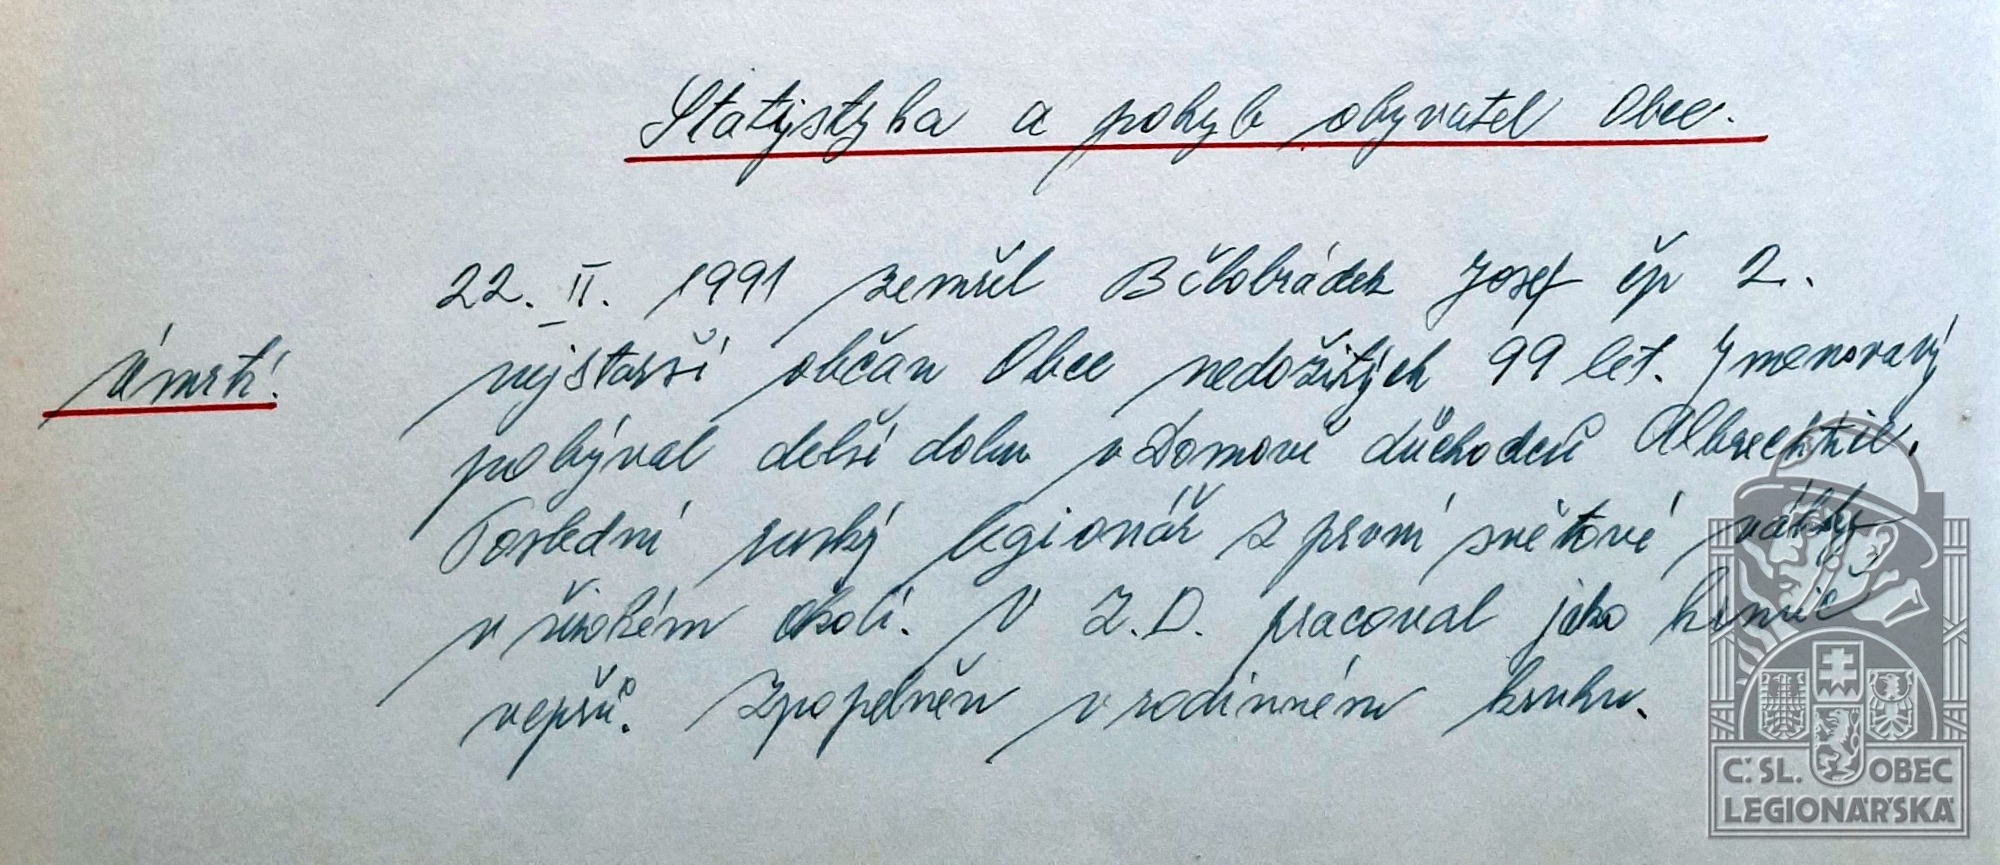 Statystyka a pohyb obyvatel Obce.
22. II. 1991 zemřel Bělobrádek Josef čp 2.
Úmrtí.
nejstarší občan Obce nedožitých 99 let. Jmenovaný
pobýval delší dobu v Domově důchodců Albrechtic.
Poslední ruský legionář z první světové války
v širokém okolí. V Z.D. pracoval jako krmič
vepřů. Zpopelněn v rodinném kruhu.
Č. SL. OBEC
LEGIONÁŘSKÁ